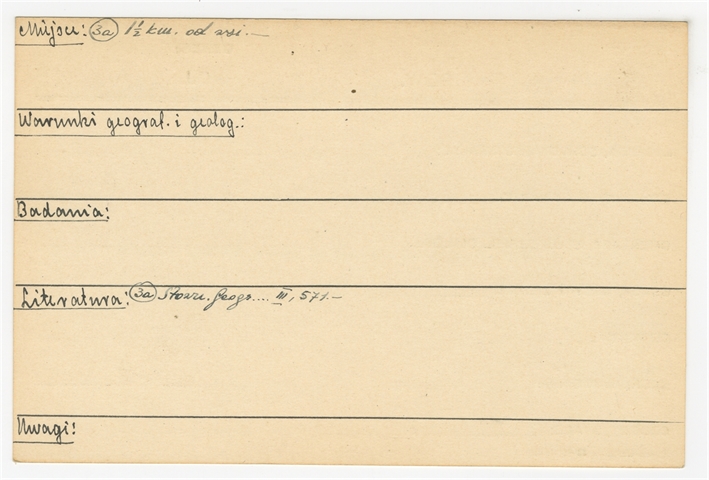 Miejsce: (3a) 1½ km. od wsi.—
Warunki geograf. i geolog.:
Badania:
Literatura: (3a) Słown. geogr.... III, 571.—
Uwagi: